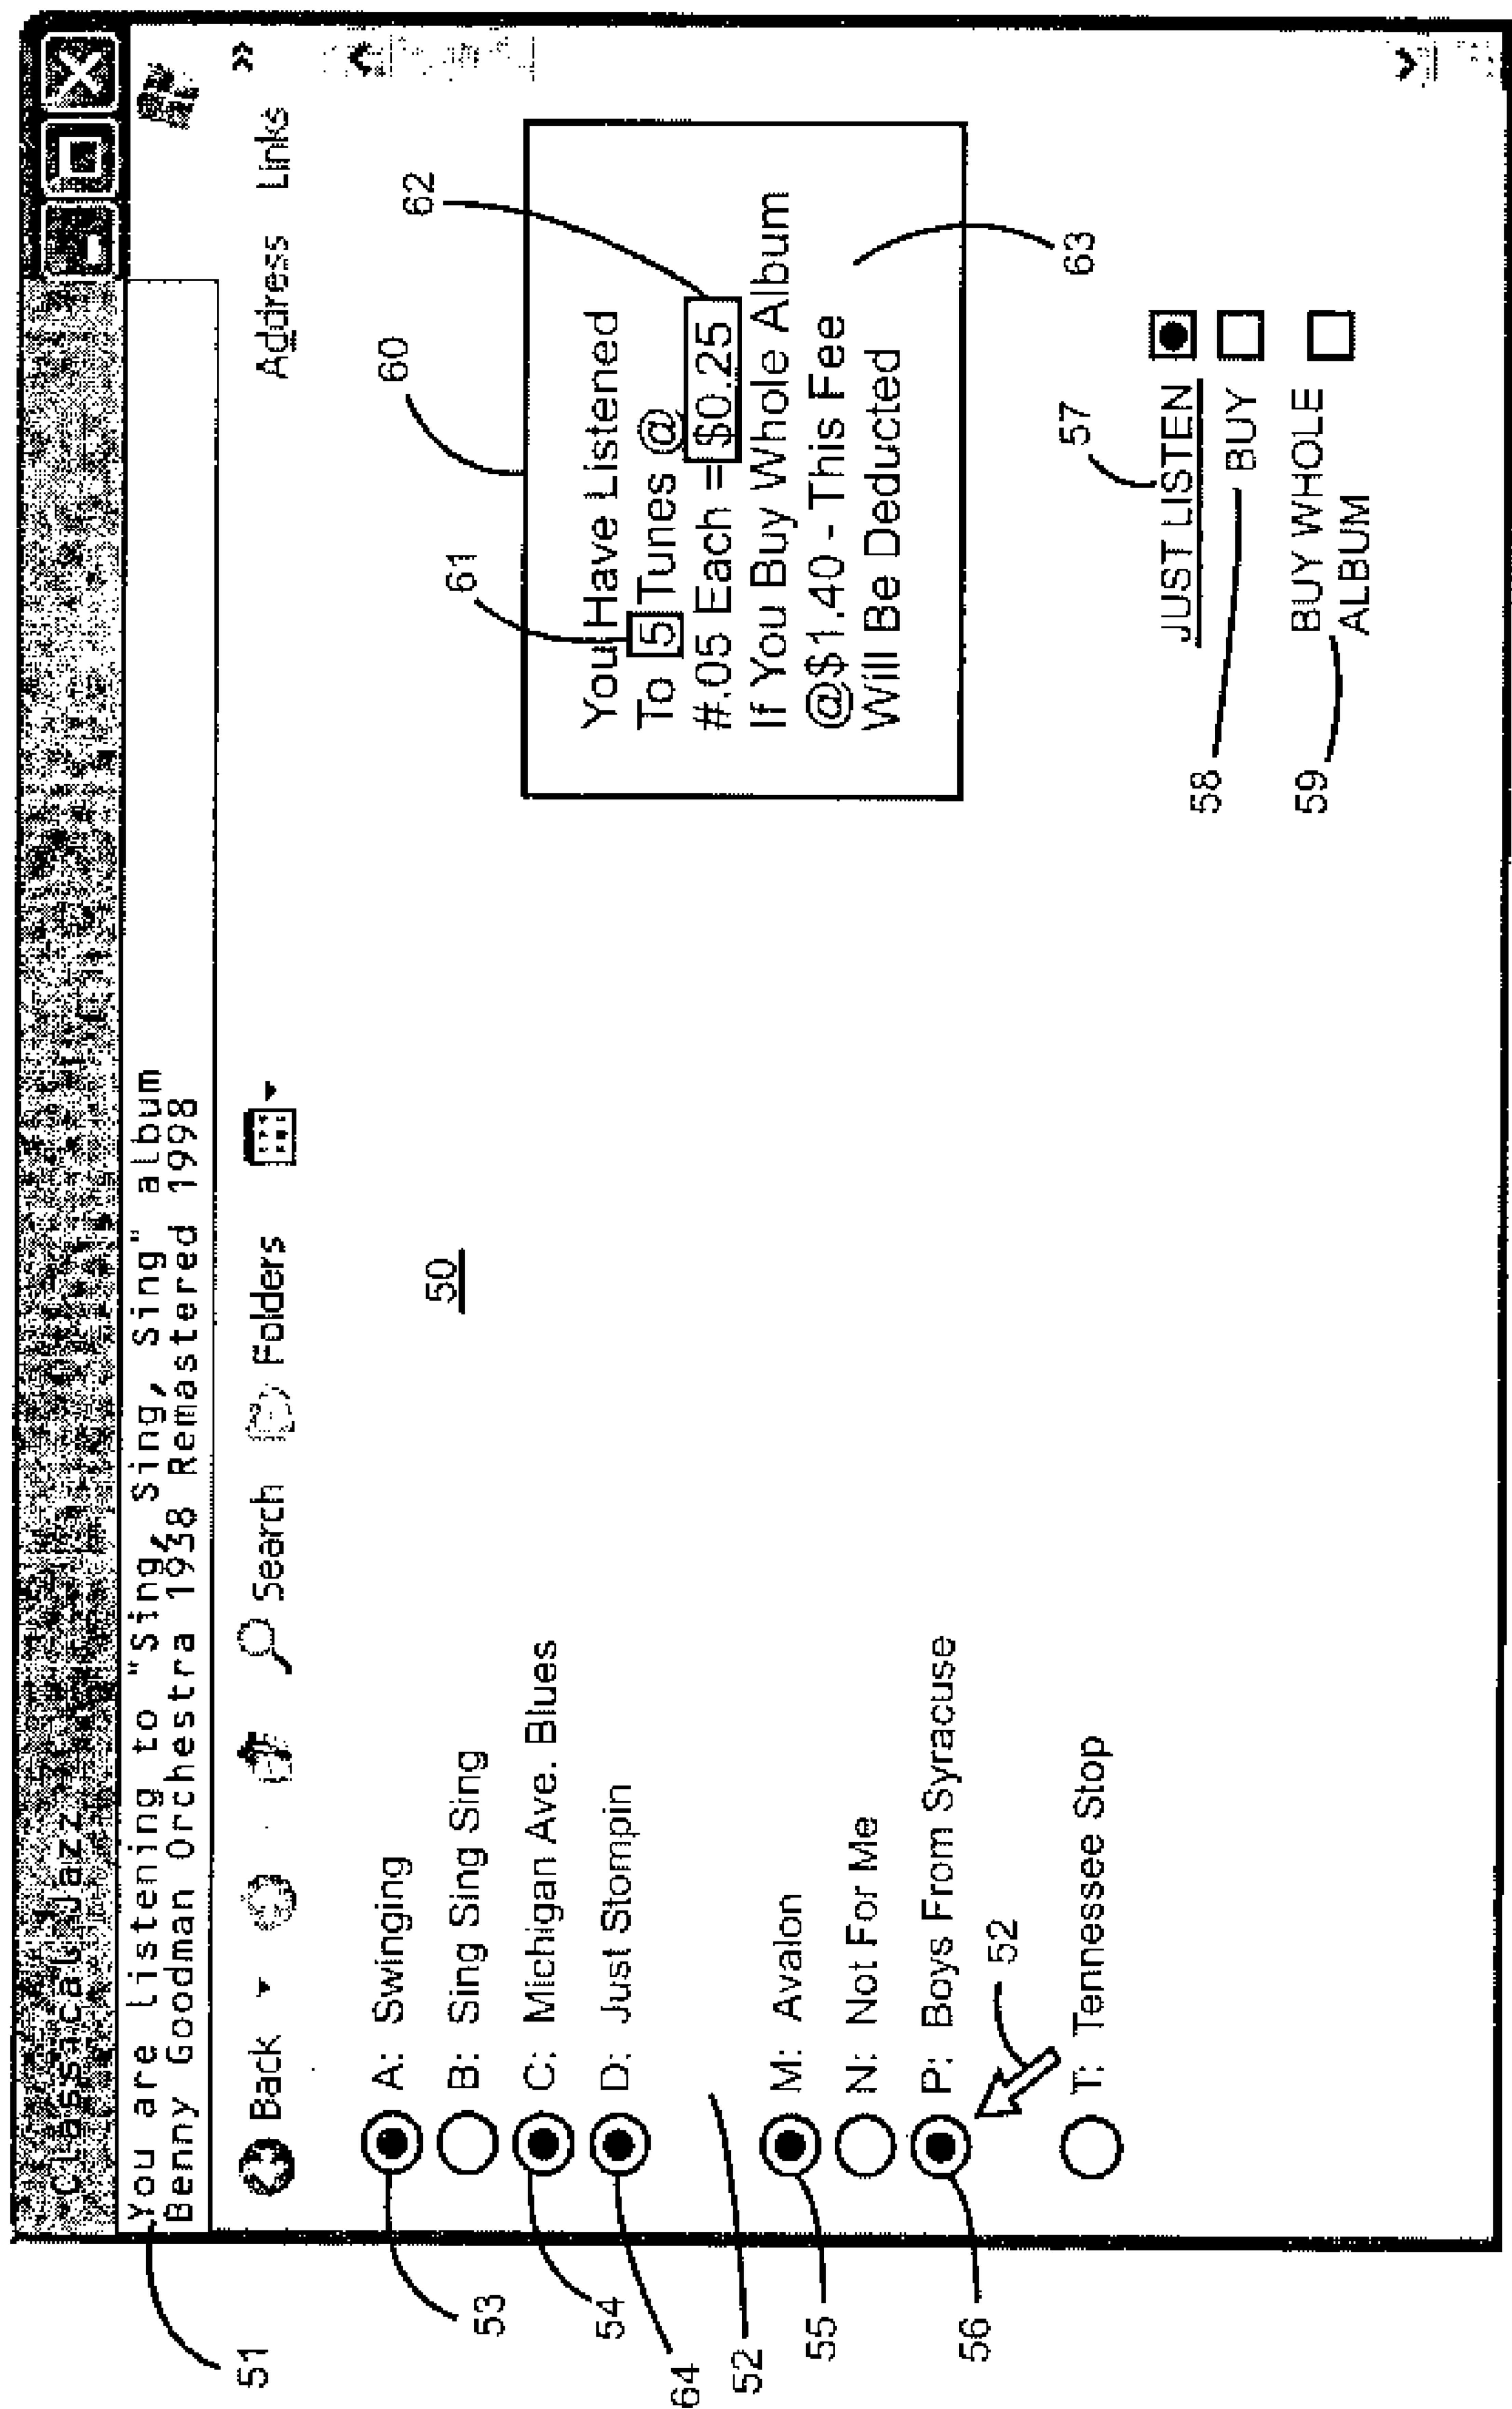 Classical Jazz
You are listening to "Sing, Sing, Sing" album
Benny Goodman Orchestra 1938 Remastered 1998
Back
Search
Folders
Address
Links
»
51
50
A: Swinging
B: Sing Sing Sing
C: Michigan Ave. Blues
D: Just Stompin
M: Avalon
N: Not For Me
P: Boys From Syracuse
T: Tennessee Stop
53
54
64
52
55
56
52
60
61
62
You Have Listened
To 5 Tunes @
#.05 Each = $0.25
If You Buy Whole Album
@$1.40 - This Fee
Will Be Deducted
63
57
JUST LISTEN
58
BUY
59
BUY WHOLE
ALBUM